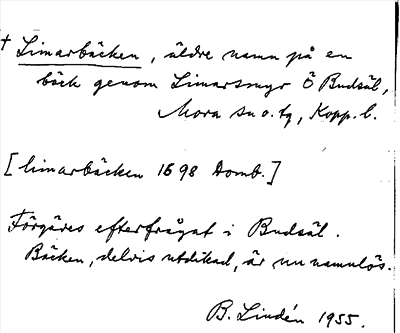 † Limarbäcken, äldre namn på en
bäck genom Limarsmyr Ö Budsäl,
Mora sn o. tg, Kopp. l.
[limarbäcken 1698 Domb.]
Förgäves efterfrågat i Budsäl.
Bäcken, delvis utdikad, är nu namnlös.
B. Lindén 1955.